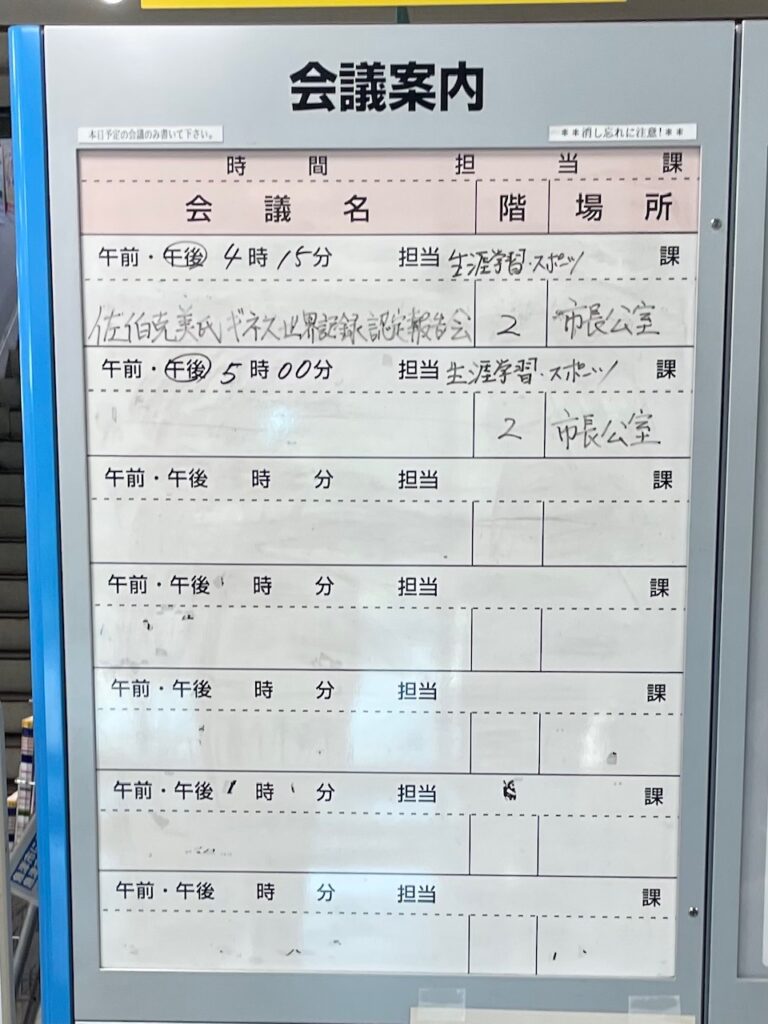 会議案内
本日予定の会議のみ書いて下さい。
＊＊消し忘れに注意！＊＊
時間 担当課
会議名 階 場所
午前・午後 4時15分 担当 生涯学習・スポーツ 課
佐伯克美氏ギネス世界記録認定報告会 2 市長公室
午前・午後 5時00分 担当 生涯学習・スポーツ 課
2 市長公室
午前・午後 時 分 担当 課
午前・午後 時 分 担当 課
午前・午後 時 分 担当 課
午前・午後 時 分 担当 課
午前・午後 時 分 担当 課